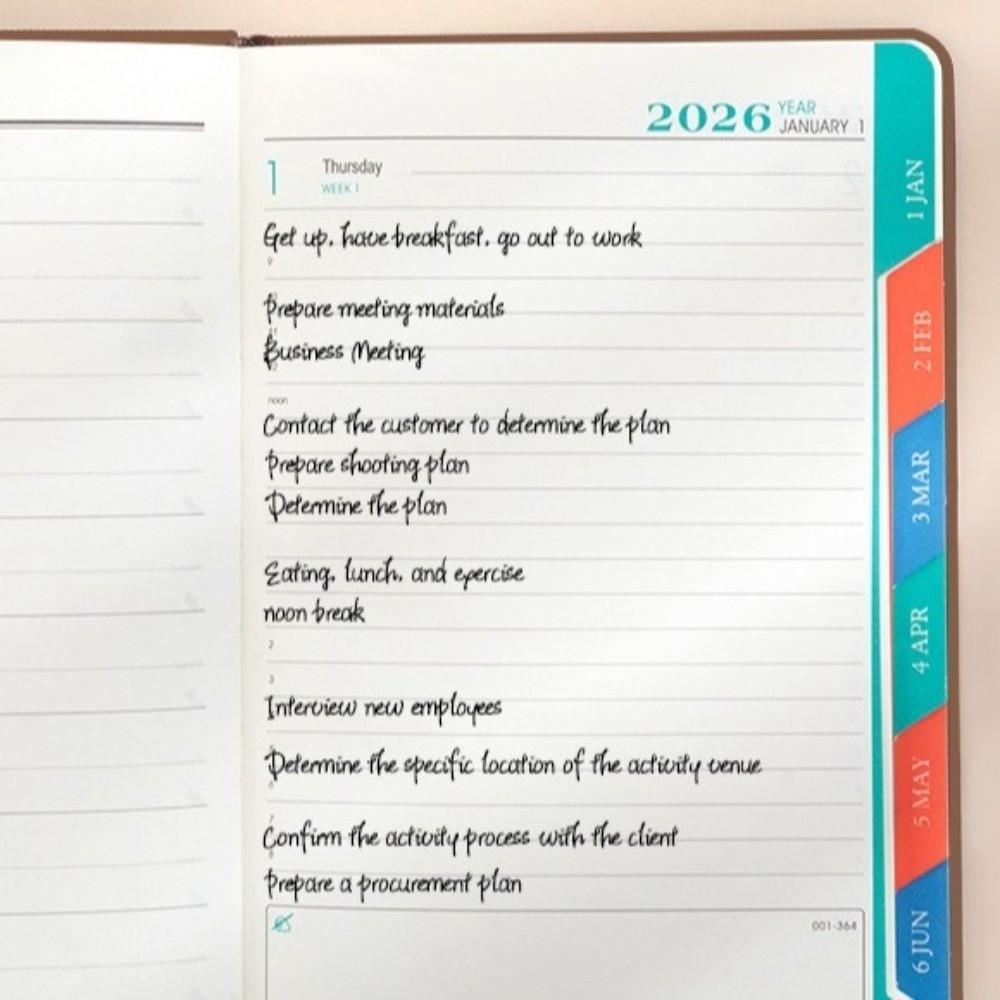 2026 YEAR
JANUARY 1
1 Thursday
WEEK 1
Get up, have breakfast, go out to work
9
Prepare meeting materials
Business Meeting
noon
Contact the customer to determine the plan
Prepare shooting plan
Determine the plan
Eating, lunch, and epercise
noon break
2
3
Interview new employees
Determine the specific location of the activity venue
Confirm the activity process with the client
Prepare a procurement plan
001-364
1 JAN
2 FEB
3 MAR
4 APR
5 MAY
6 JUN